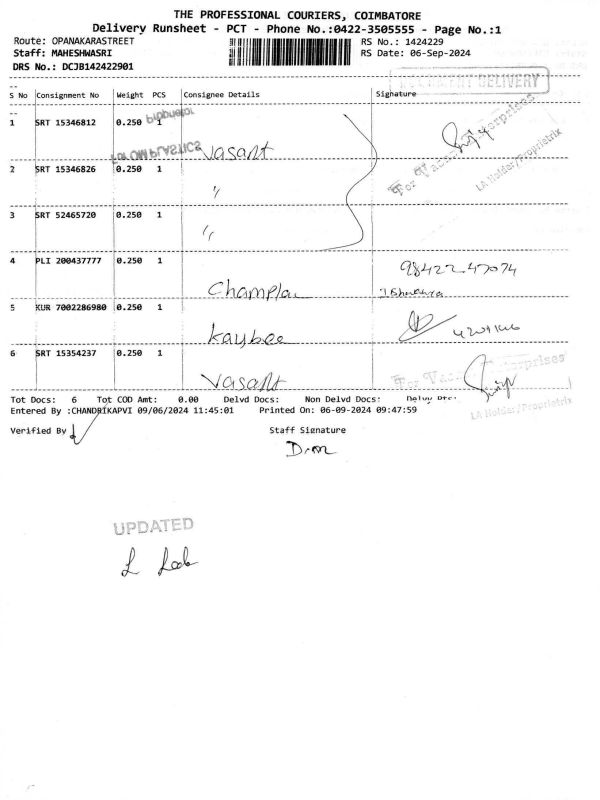 THE PROFESSIONAL COURIERS, COIMBATORE
Delivery Runsheet - PCT - Phone No.:0422-3505555 - Page No.:1
Route: OPANAKARASTREET RS No.: 1424229
Staff: MAHESHWASRI RS Date: 06-Sep-2024
DRS No.: DCJB142422901
DOCUMENT DELIVERY
--
S No Consignment No Weight PCS Consignee Details Signature
--
1 SRT 15346812 0.250 1 Vasant
For OM PLASTICS
For Enterprises
LA Holder/Proprietrix
2 SRT 15346826 0.250 1 "
3 SRT 52465720 0.250 1 "
4 PLI 200437777 0.250 1 Champla 98422-47074
5 KUR 7002286980 0.250 1 kaybee
6 SRT 15354237 0.250 1 Vasant
For Enterprises
LA Holder/Proprietrix
Tot Docs: 6 Tot COD Amt: 0.00 Delvd Docs: Non Delvd Docs:
Entered By :CHANDRIKAPVI 09/06/2024 11:45:01 Printed On: 06-09-2024 09:47:59
Verified By Staff Signature
UPDATED